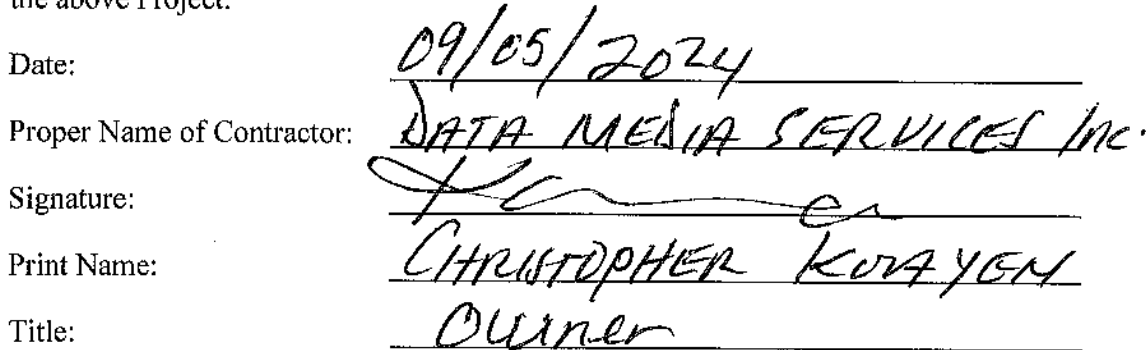 the above Project.
Date: 09/05/2024
Proper Name of Contractor: DATA MEDIA SERVICES Inc.
Signature:
Print Name: CHRISTOPHER
Title: Owner